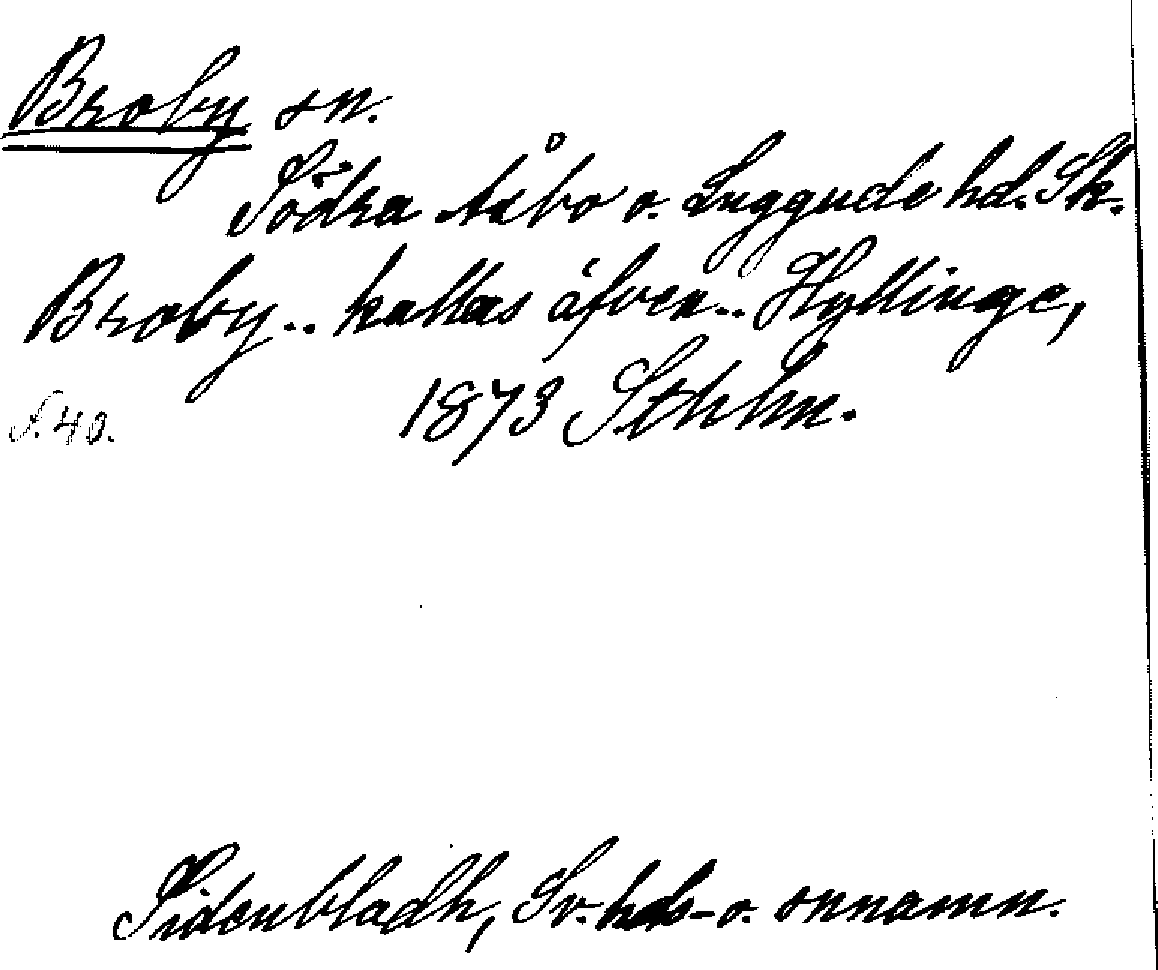 Broby sn.
Södra Åsbo o. Luggude hd. Sk.
Broby.. kallas äfven.. Hyllinge,
S. 40. 1873 Sthlm.
Sidenbladh, Sv. hds- o. snnamn.